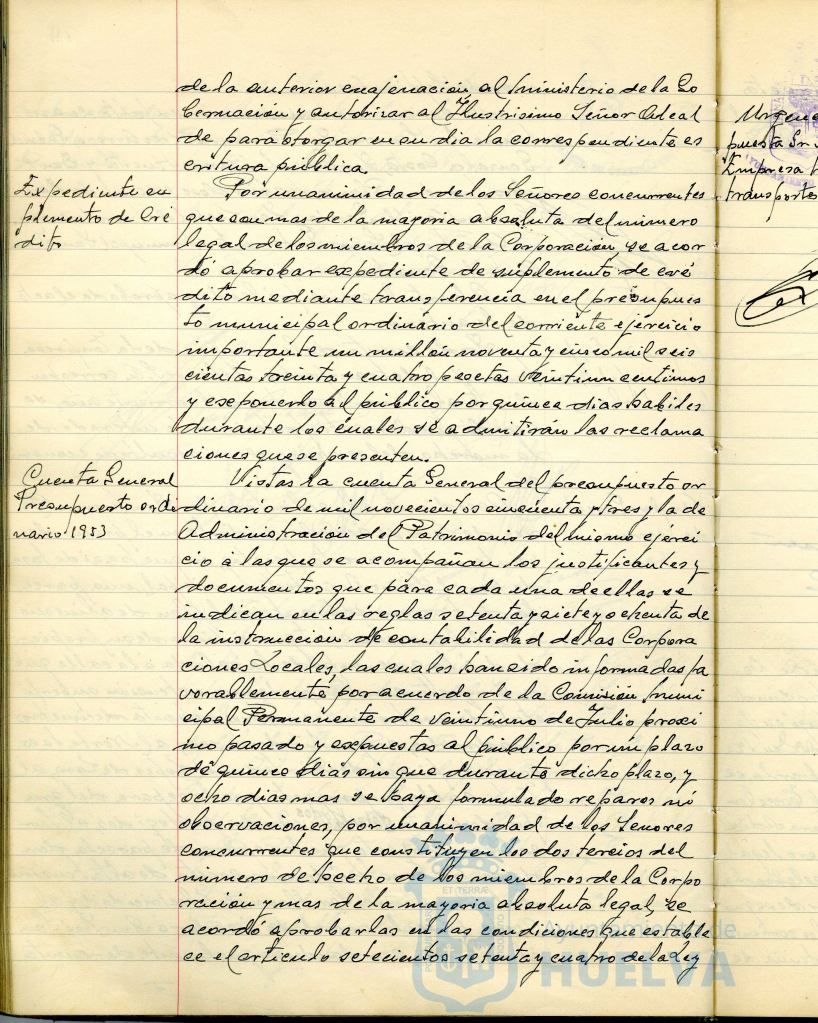 de la anterior enajenación, al Ministerio de la Go
bernación y autorizar al Ilustrisimo Señor Alcal
de para otorgar en su dia la correspondiente es
critura pública.
Expediente su
plemento de Cré
dito
Por unanimidad de los Señores concurrentes
que son mas de la mayoria absoluta del número
legal de los miembros de la Corporación, se acor
dó aprobar expediente de suplemento de cré
dito mediante transferencia en el presupues
to municipal ordinario del corriente ejercicio
importante un millón noventa y cinco mil seis
cientas treinta y cuatro pesetas veintiun centimos
y exponerlo al público por quince dias habiles
durante los cuales se admitirán las reclama
ciones que se presenten.
Cuenta General
Presupuesto ordi
nario 1953
Vistas la cuenta General del presupuesto or
dinario de mil novecientos cincuenta y tres y la de
Administración del Patrimonio del mismo ejerci
cio á las que se acompañan los justificantes y
documentos que para cada una de ellas se
indican en las reglas setenta y siete y ochenta de
la instrucción de contabilidad de las Corpora
ciones Locales, las cuales han sido informadas fa
vorablemente por acuerdo de la Comisión Muni
cipal Permanente de veintiuno de Julio proxi
mo pasado y expuestas al público por un plazo
de quince dias sin que durante dicho plazo, y
ocho dias mas se haya formulado reparos ni
observaciones, por unanimidad de los Señores
concurrentes que constituyen los dos tercios del
número de hecho de los miembros de la Corpo
ración y mas de la mayoria absoluta legal, se
acordó aprobarlas en las condiciones que estable
ce el articulo setecientos setenta y cuatro de la Ley
Urgenc
puesta Sr.
Empresa
transportes
de
HUELVA